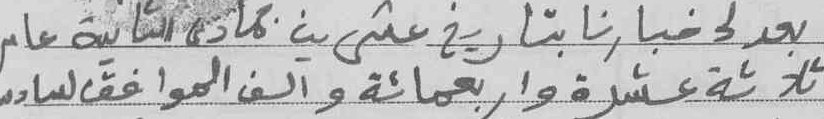 بعد لخبارنا بتاريخ عشرين جمادى الثانية عام
ثلاثة عشرة واربعمائة والف الموافق لسادس